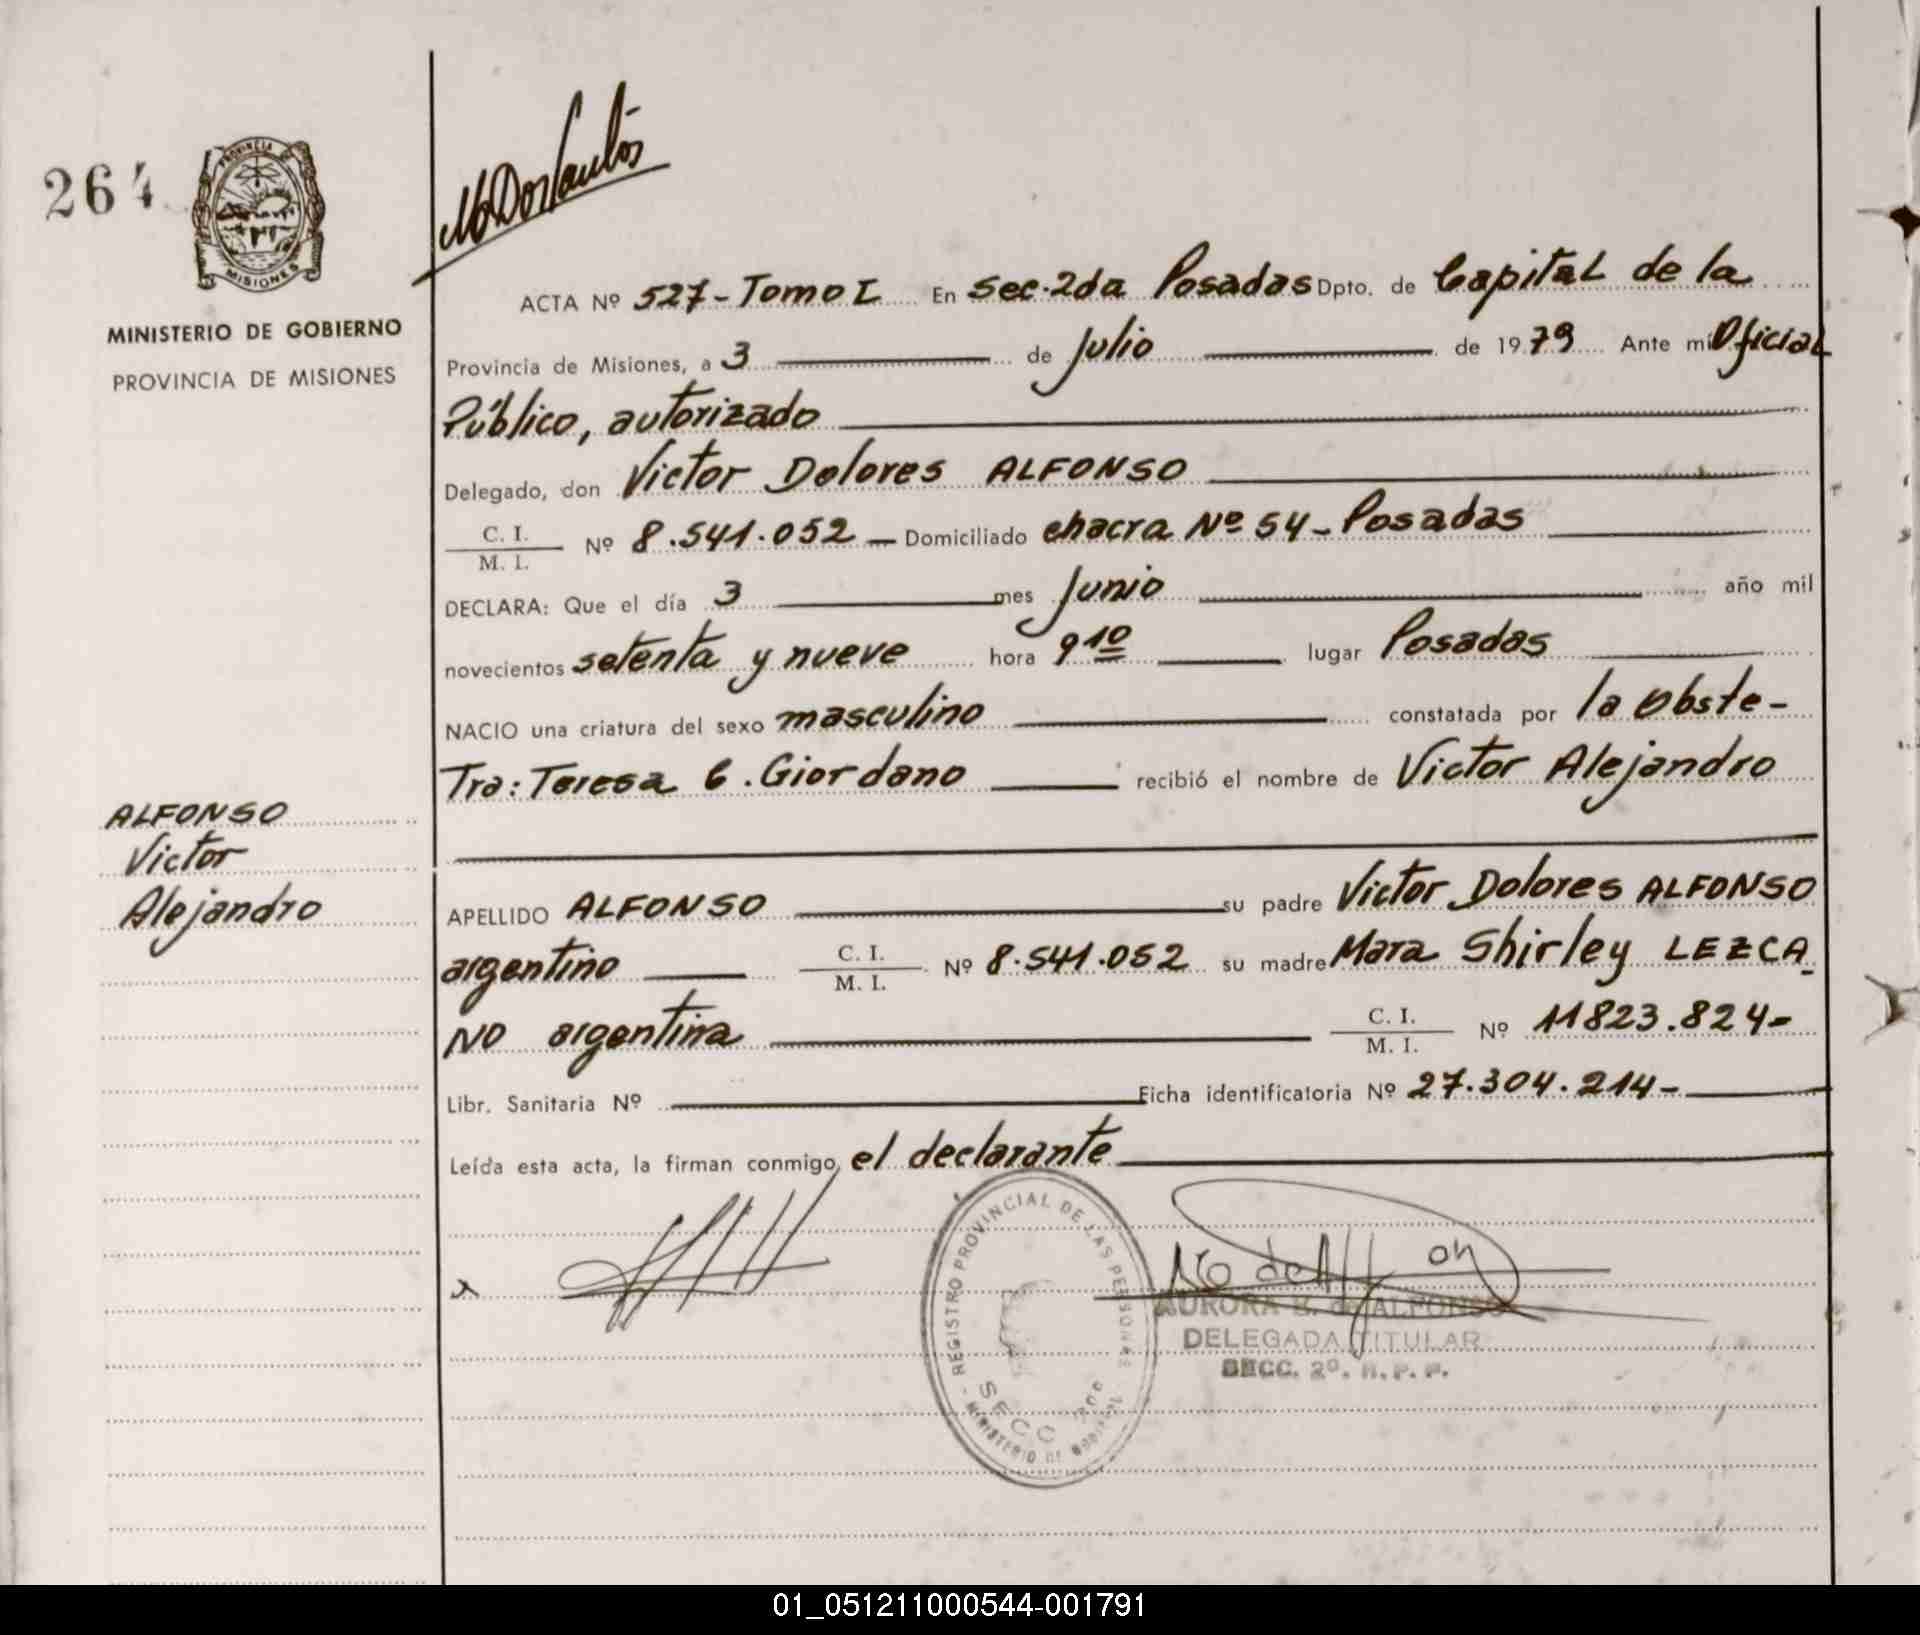 264
PROVINCIA DE
MISIONES
MINISTERIO DE GOBIERNO
PROVINCIA DE MISIONES
M Dos Santos
ACTA Nº 527 - Tomo I En Sec. 2da Posadas Dpto. de Capital de la
Provincia de Misiones, a 3 de Julio de 1979 Ante mi Oficial
Público, autorizado
Delegado, don Victor Dolores ALFONSO
C. I.
M. I.
Nº 8.541.052 — Domiciliado chacra Nº 54 - Posadas
DECLARA: Que el día 3 mes Junio año mil
novecientos setenta y nueve hora 9 10 lugar Posadas
NACIO una criatura del sexo masculino constatada por la Obste-
Tra: Teresa C. Giordano recibió el nombre de Victor Alejandro
ALFONSO
Victor
Alejandro
APELLIDO ALFONSO su padre Victor Dolores ALFONSO
argentino C. I. M. I. Nº 8.541.052 su madre Mara Shirley LEZCA-
NO argentina C. I. M. I. Nº 11823.824-
Libr. Sanitaria Nº Ficha identificatoria Nº 27.304.214-
Leída esta acta, la firman conmigo, el declarante
REGISTRO PROVINCIAL DE LAS PERSONAS
SECC
MINISTERIO DE GOBIERNO
AURORA B. de ALFONSO
DELEGADA TITULAR
SECC. 2º. R. P. P.
01_051211000544-001791